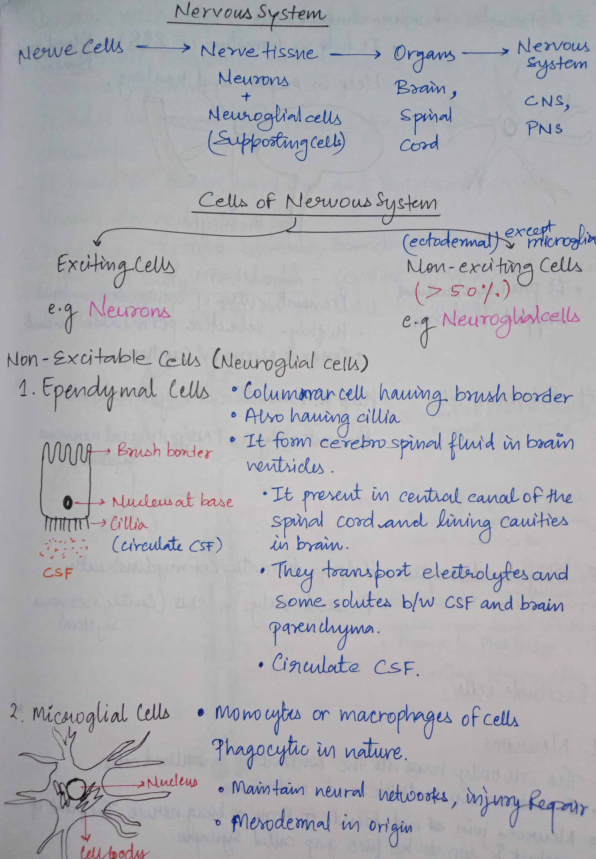 Nervous System
Nerve Cells → Nerve tissue → Organs → Nervous System
Neurons
+
Neuroglial cells
(Supporting cells)
Brain,
Spinal
Cord
CNS,
PNS
Cells of Nervous System
Exciting Cells
e.g Neurons
(ectodermal) except microglia
Non-exciting Cells
(>50%)
e.g Neuroglial cells
Non-Excitable Cells (Neuroglial cells)
1. Ependymal Cells
• Columnar cell having brush border
• Also having cillia
• It form cerebro spinal fluid in brain
ventricles.
• It present in central canal of the
spinal cord and lining cavities
in brain.
• They transport electrolytes and
some solutes b/w CSF and brain
parenchyma.
• Circulate CSF.
→ Brush border
→ Nucleus at base
→ Cillia
(circulate CSF)
CSF
2. Microglial Cells
• Monocytes or macrophages of cells
Phagocytic in nature.
• Maintain neural networks, injury Repair
• Mesodermal in origin
→ Nucleus
Cell body